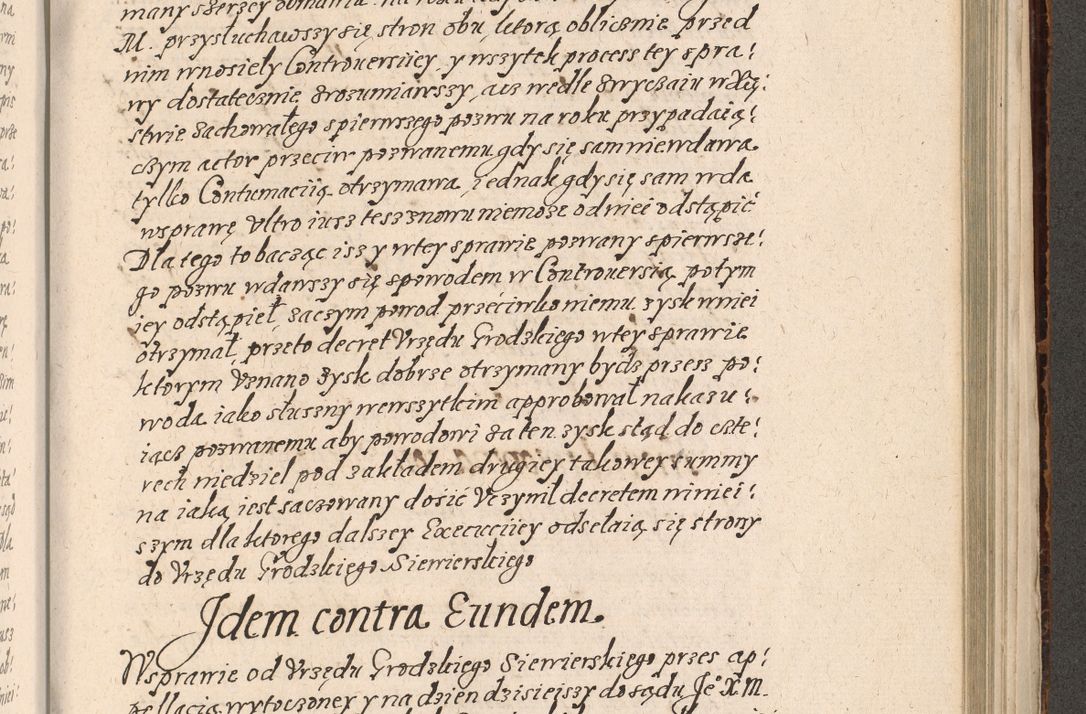 M. przysłuchawszy się stron obu, ktorą oblicznie przed
nim wnosiely Controuersiiey y wszytek process tey spra:
wy dostatecznie zrozumiawszy, acz wedle zwyczaiu w Xię:
stwie zachowałego z pierwszego pozwu na roku przypadaią:
czym actor przeciw pozwanemu gdy się sam niewdawa
tylko Contumaciią otrzymawa, iednak gdy się sam wda
wsprawę Vltro iusz tesz znowu niemoże od niei odstąpić
Dla tego to bacząc isz y wtey sprawie pozwany z pierwsze:
go pozwu wdawszy się spowodem w Controuersią, potym
iey odstąpieł, zaczym powod przeciwko niemu zysk wniei
otrzymał, przeto decret Vrzędu Grodzkiego wtey sprawie
ktorym Vznano zysk dobrze otrzymany bydz przesz po:
woda iako słuszny wewszytkim approbował nakazu:
iącz pozwanemu aby powodowi za ten zysk stąd do czte:
rech niedziel pod zakładem drugiey takowey summy
na iaką iest szaczowany dosić Vczynil decretem niniei:
szym dla ktorego dalszey Execuciiey odsełaią się strony
do Vrzędu Grodzkiego Siewierskiego
Jdem contra Eundem.
Wsprawie od Vrzędu Grodzkiego Siewierskiego przes ap:
pellacią wytoczoney y na dzien dzisieiszy do sądu Je° X M.